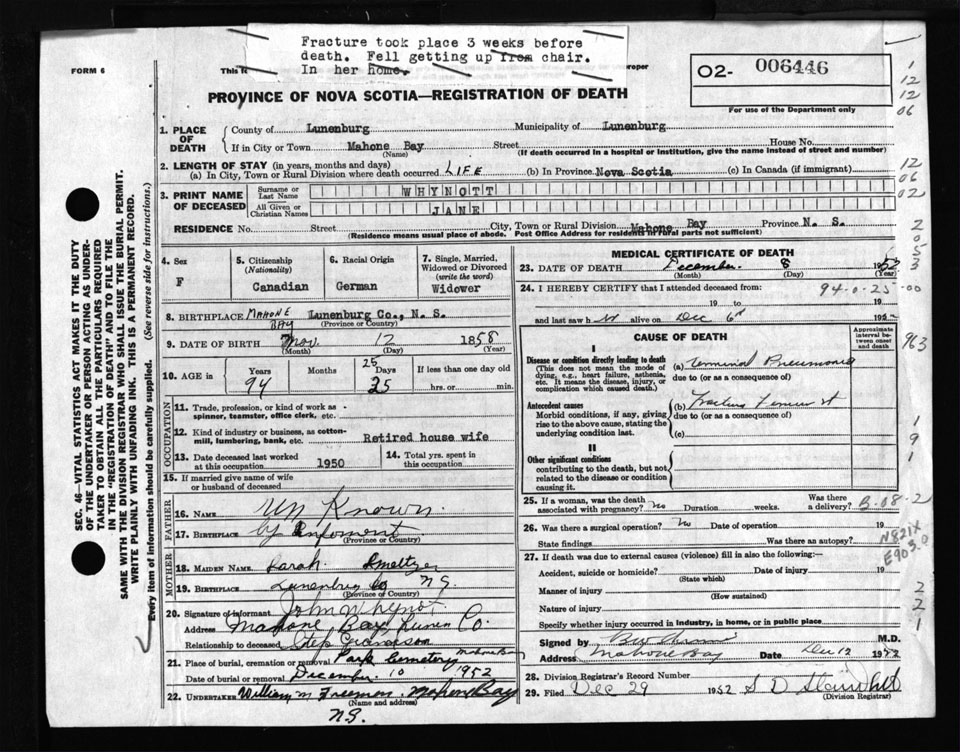 Fracture took place 3 weeks before
death. Fell getting up from chair.
In her home.
FORM 6
This R
roper
02- 006446
For use of the Department only
PROVINCE OF NOVA SCOTIA—REGISTRATION OF DEATH
1. PLACE OF DEATH
County of Lunenburg Municipality of Lunenburg
If in City or Town Mahone Bay Street House No.
(Name) (If death occurred in a hospital or institution, give the name instead of street and number)
2. LENGTH OF STAY (in years, months and days)
(a) In City, Town or Rural Division where death occurred LIFE (b) In Province Nova Scotia (c) In Canada (if immigrant)
3. PRINT NAME OF DECEASED
Surname or Last Name WHYNOTT
All Given or Christian Names JANE
RESIDENCE No. Street City, Town or Rural Division Mahone Bay Province N. S.
(Residence means usual place of abode. Post Office Address for residents in rural parts not sufficient)
4. Sex F
5. Citizenship (Nationality) Canadian
6. Racial Origin German
7. Single, Married, Widowed or Divorced (write the word) Widower
8. BIRTHPLACE MAHONE BAY Lunenburg Co., N. S.
(Province or Country)
9. DATE OF BIRTH Nov. 12 1858
(Month) (Day) (Year)
10. AGE in Years 94 Months Days 25 25 If less than one day hrs. or min.
OCCUPATION
11. Trade, profession, or kind of work as - spinner, teamster, office clerk, etc.
12. Kind of industry or business, as cotton-mill, lumbering, bank, etc. Retired house wife
13. Date deceased last worked at this occupation 1950
14. Total yrs. spent in this occupation
15. If married give name of wife or husband of deceased
FATHER
16. NAME Un Known
17. BIRTHPLACE by Informent
(Province or Country)
MOTHER
18. MAIDEN NAME Sarah Smeltzer
19. BIRTHPLACE Lunenburg Co N.S.
(Province or Country)
20. Signature of informant John Whynot
Address Mahone Bay, Lunen Co.
Relationship to deceased Step Grandson
21. Place of burial, cremation or removal Park Cemetery Mahone Bay
Date of burial or removal December 10 1952
22. UNDERTAKER William M Freeman. Mahone Bay
(Name and address)
N.S.
MEDICAL CERTIFICATE OF DEATH
23. DATE OF DEATH December 8 195
(Month) (Day) (Year)
24. I HEREBY CERTIFY that I attended deceased from:
94-0-25
19 to 19
and last saw h alive on Dec 6 195
CAUSE OF DEATH
Approximate interval between onset and death
I
Disease or condition directly leading to death
(This does not mean the mode of dying, e.g., heart failure, asthenia, etc. It means the disease, injury, or complication which caused death.)
(a) Terminal Pneumonia
due to (or as a consequence of)
Antecedent causes
Morbid conditions, if any, giving rise to the above cause, stating the underlying condition last.
(b) Fracture Femur
due to (or as a consequence of)
(c)
II
Other significant conditions
contributing to the death, but not related to the disease or condition causing it.
25. If a woman, was the death associated with pregnancy? No Duration weeks. Was there a delivery?
26. Was there a surgical operation? No Date of operation 19
State findings Was there an autopsy?
27. If death was due to external causes (violence) fill in also the following:—
Accident, suicide or homicide? Date of injury 19
(State which)
Manner of injury
(How sustained)
Nature of injury
Specify whether injury occurred in industry, in home, or in public place
Signed by M.D.
Address Mahone Bay Date Dec 12 1952
28. Division Registrar's Record Number
29. Filed Dec 29 1952 S D
(Division Registrar)
1
12
12
06
12
06
02
2
0
5
3
00
963
1
9
1
B-08-2
N821X
E903.0
2
2
1
SEC. 46—VITAL STATISTICS ACT MAKES IT THE DUTY
OF THE UNDERTAKER OR PERSON ACTING AS UNDER-
TAKER TO OBTAIN ALL THE PARTICULARS REQUIRED
IN THE "REGISTRATION OF DEATH" AND TO FILE THE
SAME WITH THE DIVISION REGISTRAR WHO SHALL ISSUE THE BURIAL PERMIT.
WRITE PLAINLY WITH UNFADING INK. THIS IS A PERMANENT RECORD.
Every item of information should be carefully supplied. (See reverse side for instructions.)